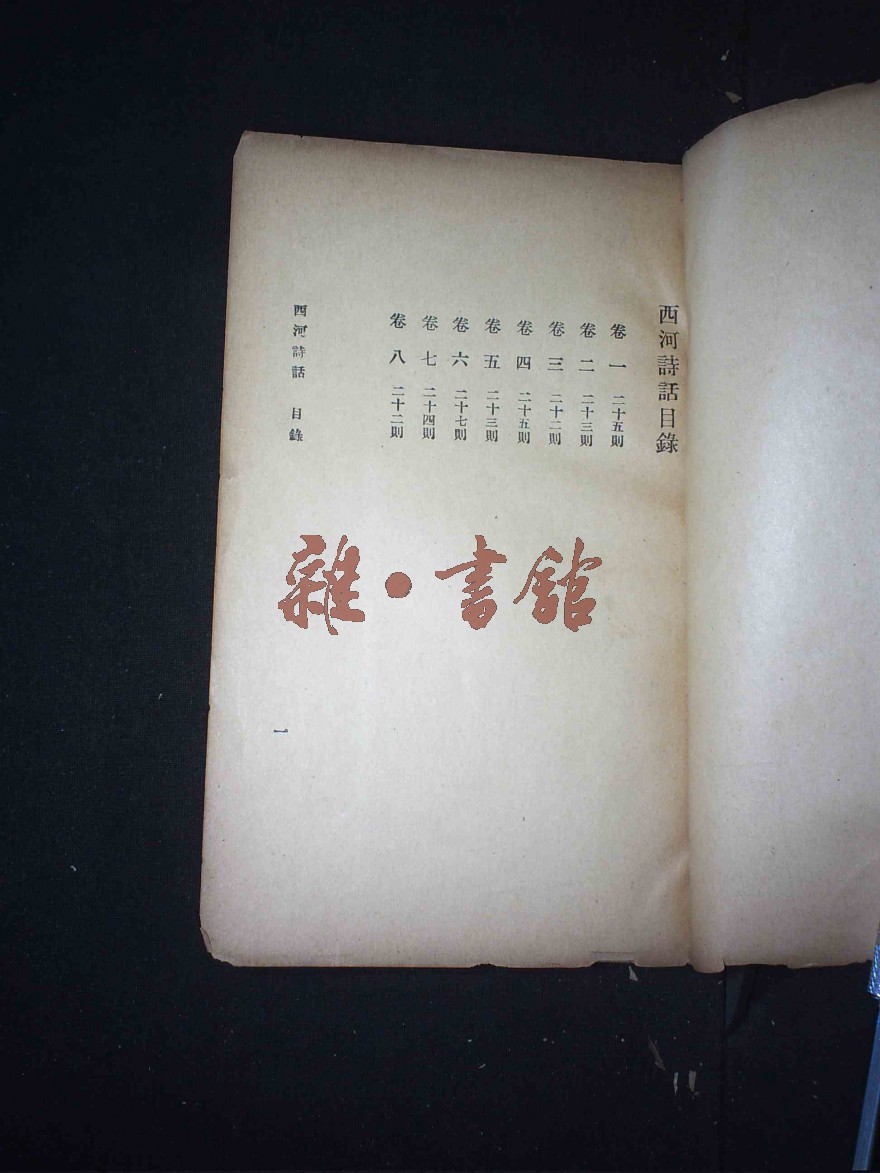 西河詩話目錄
卷一 二十五則
卷二 二十三則
卷三 二十二則
卷四 二十五則
卷五 二十三則
卷六 二十七則
卷七 二十四則
卷八 二十二則
西河詩話 目錄
一
雜·書館